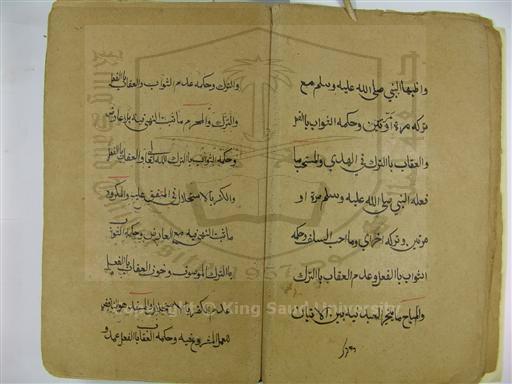 واظبها النبي صلى الله عليه وسلم مع
تركه مرة او مرتين وحكمه الثواب بالفعل
والعقاب بالترك في الهدي والمستحب ما
فعله النبي صلى الله عليه وسلم مرة او
مرتين وتركه اخرى وما احب السلف وحكمه
الثواب بالفعل وعدم العقاب بالترك
والمباح ما يخير العبد فيه بين الاتيان
والترك وحكمه عدم الثواب والعقاب بالفعل
والترك والمحرم ما ثبت النهي فيه بلا عارض
وحكمه الثواب بالترك لله تعالى والعقاب بالفعل
والكفر بالاستحلال في المتفق عليه والمكروه
ما ثبت النهي فيه مع العارض وحكمه الثواب
بالترك وخوف العقاب بالفعل
وعدم الكفر بالاستحلال والمفسد هو الناقض
للعمل المشروع فيه وحكمه العقاب بالفعل عمدا و
King Saud University
1957